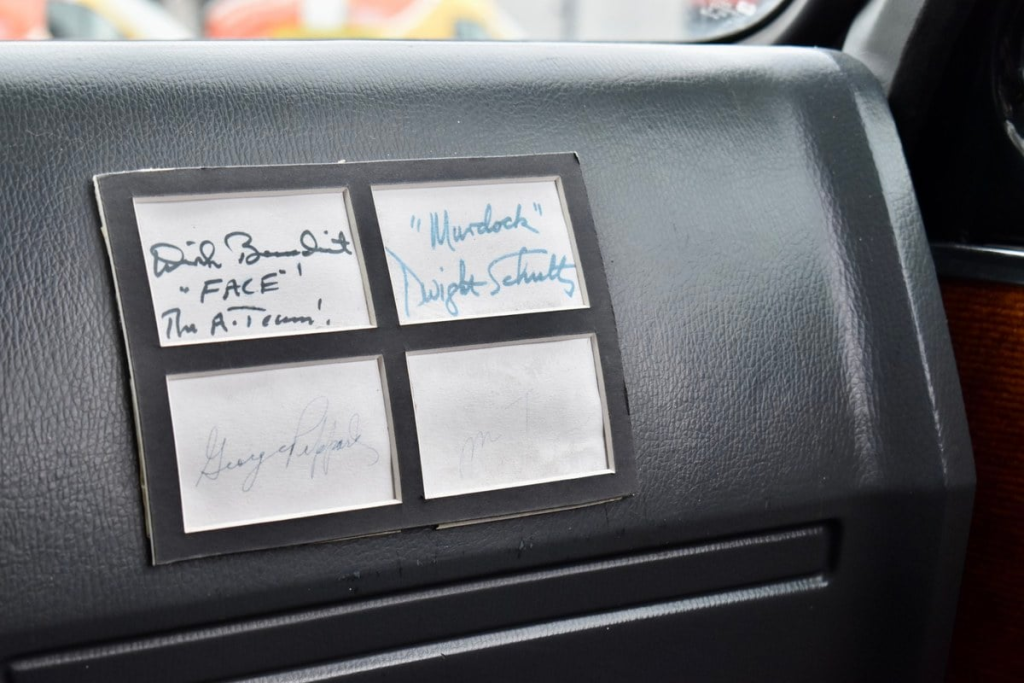 Dirk Benedict
"FACE"!
The A-Team!
"Murdock"
Dwight Schultz
George Peppard
M T